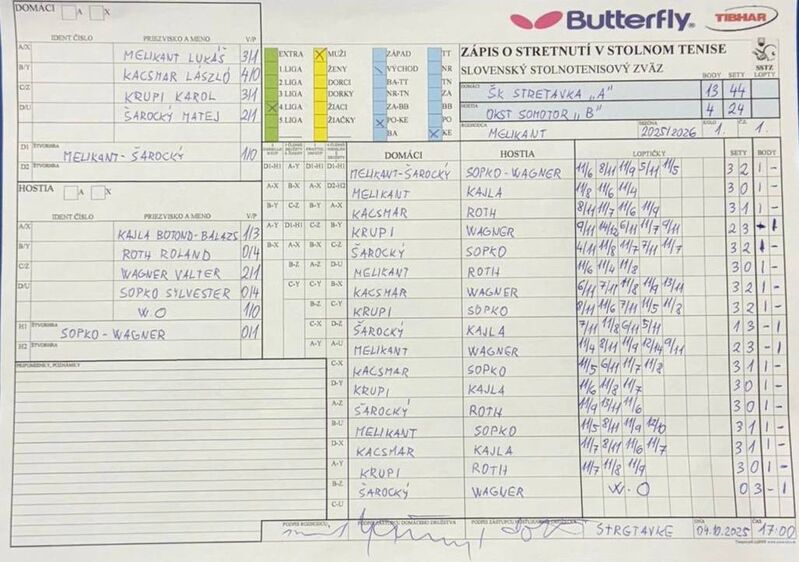 DOMÁCI A X
Butterfly TIBHAR
IDENT ČÍSLO PRIEZVISKO A MENO V/P
A/X MELIKANT LUKÁŠ 3/1
B/Y KACSMAR LÁSZLÓ 4/0
C/Z KRUPI KAROL 3/1
D/U ŠAROCKÝ MATEJ 2/1
D1 ŠTVORHRA MELIKANT-ŠAROCKÝ 1/0
D2 ŠTVORHRA
HOSTIA A X
IDENT ČÍSLO PRIEZVISKO A MENO V/P
A/X KAJLA BOTOND-BALAZS 1/3
B/Y ROTH ROLAND 0/4
C/Z WAGNER VALTER 2/1
D/U SOPKO SYLVESTER 0/4
W.O 1/0
H1 ŠTVORHRA SOPKO-WAGNER 0/1
H2 ŠTVORHRA
PRIPOMIENKY, POZNÁMKY
EXTRA MUŽI ZÁPAD TT
1.LIGA ŽENY VÝCHOD NR
2.LIGA DORCI BA-TT TN
3.LIGA DORKY NR-TN ZA
4.LIGA ŽIACI ZA-BB BB
5.LIGA ŽIAČKY PO-KE PO
BA KE
ZÁPIS O STRETNUTÍ V STOLNOM TENISE
SLOVENSKÝ STOLNOTENISOVÝ ZVÄZ
SSTZ
BODY SETY LOPTY
DOMÁCI ŠK STRETAVKA "A" 13 44
HOSTIA OKST SOMOTOR "B" 4 24
ROZHODCA MELIKANT SEZÓNA 2025/2026 KOLO 1. Č.Z. 1.
DOMÁCI HOSTIA LOPTIČKY SETY BODY
D1-H1 A-Y D1-H1 D1-H1 MELIKANT-ŠAROCKÝ SOPKO-WAGNER 11/6 8/11 11/9 5/11 11/5 3 2 1 -
A-X B-X A-X D2-H2 MELIKANT KAJLA 11/8 11/6 11/4 3 0 1 -
B-Y C-Z B-Y A-X KACSMAR ROTH 8/11 11/7 11/6 11/9 3 1 1 -
A-Y D1-H1 C-Z B-Y KRUPI WAGNER 9/11 14/12 6/11 11/7 9/11 2 3 - 1
B-X A-X B-X C-Z ŠAROCKÝ SOPKO 4/11 11/8 11/7 7/11 11/7 3 2 1 -
B-Z A-Z D-U MELIKANT ROTH 11/6 11/4 11/8 3 0 1 -
C-Y C-Y B-X KACSMAR WAGNER 6/11 7/11 11/8 11/9 13/11 3 2 1 -
B-Z C-Y KRUPI SOPKO 8/11 11/6 7/11 11/5 11/8 3 2 1 -
C-X D-Z ŠAROCKÝ KAJLA 7/11 11/8 6/11 5/11 1 3 - 1
A-Y A-U MELIKANT WAGNER 11/4 8/11 11/9 12/14 9/11 2 3 - 1
C-X KACSMAR SOPKO 11/5 6/11 11/7 11/8 3 1 1 -
D-Y KRUPI KAJLA 11/6 11/8 11/7 3 0 1 -
A-Z ŠAROCKÝ ROTH 11/9 13/11 11/6 3 0 1 -
B-U MELIKANT SOPKO 11/5 8/11 11/9 12/10 3 1 1 -
D-X KACSMAR KAJLA 11/7 8/11 11/6 11/7 3 1 1 -
A-Y KRUPI ROTH 11/7 11/8 11/9 3 0 1 -
B-Z ŠAROCKÝ WAGNER W.O 0 3 - 1
C-U
PODPIS ROZHODCU PODPIS ZÁSTUPCU DOMÁCEHO DRUŽSTVA PODPIS ZÁSTUPCU HOSŤUJÚCEHO DRUŽSTVA STRETAVKE DŇA 04.10.2025 ČAS 17:00